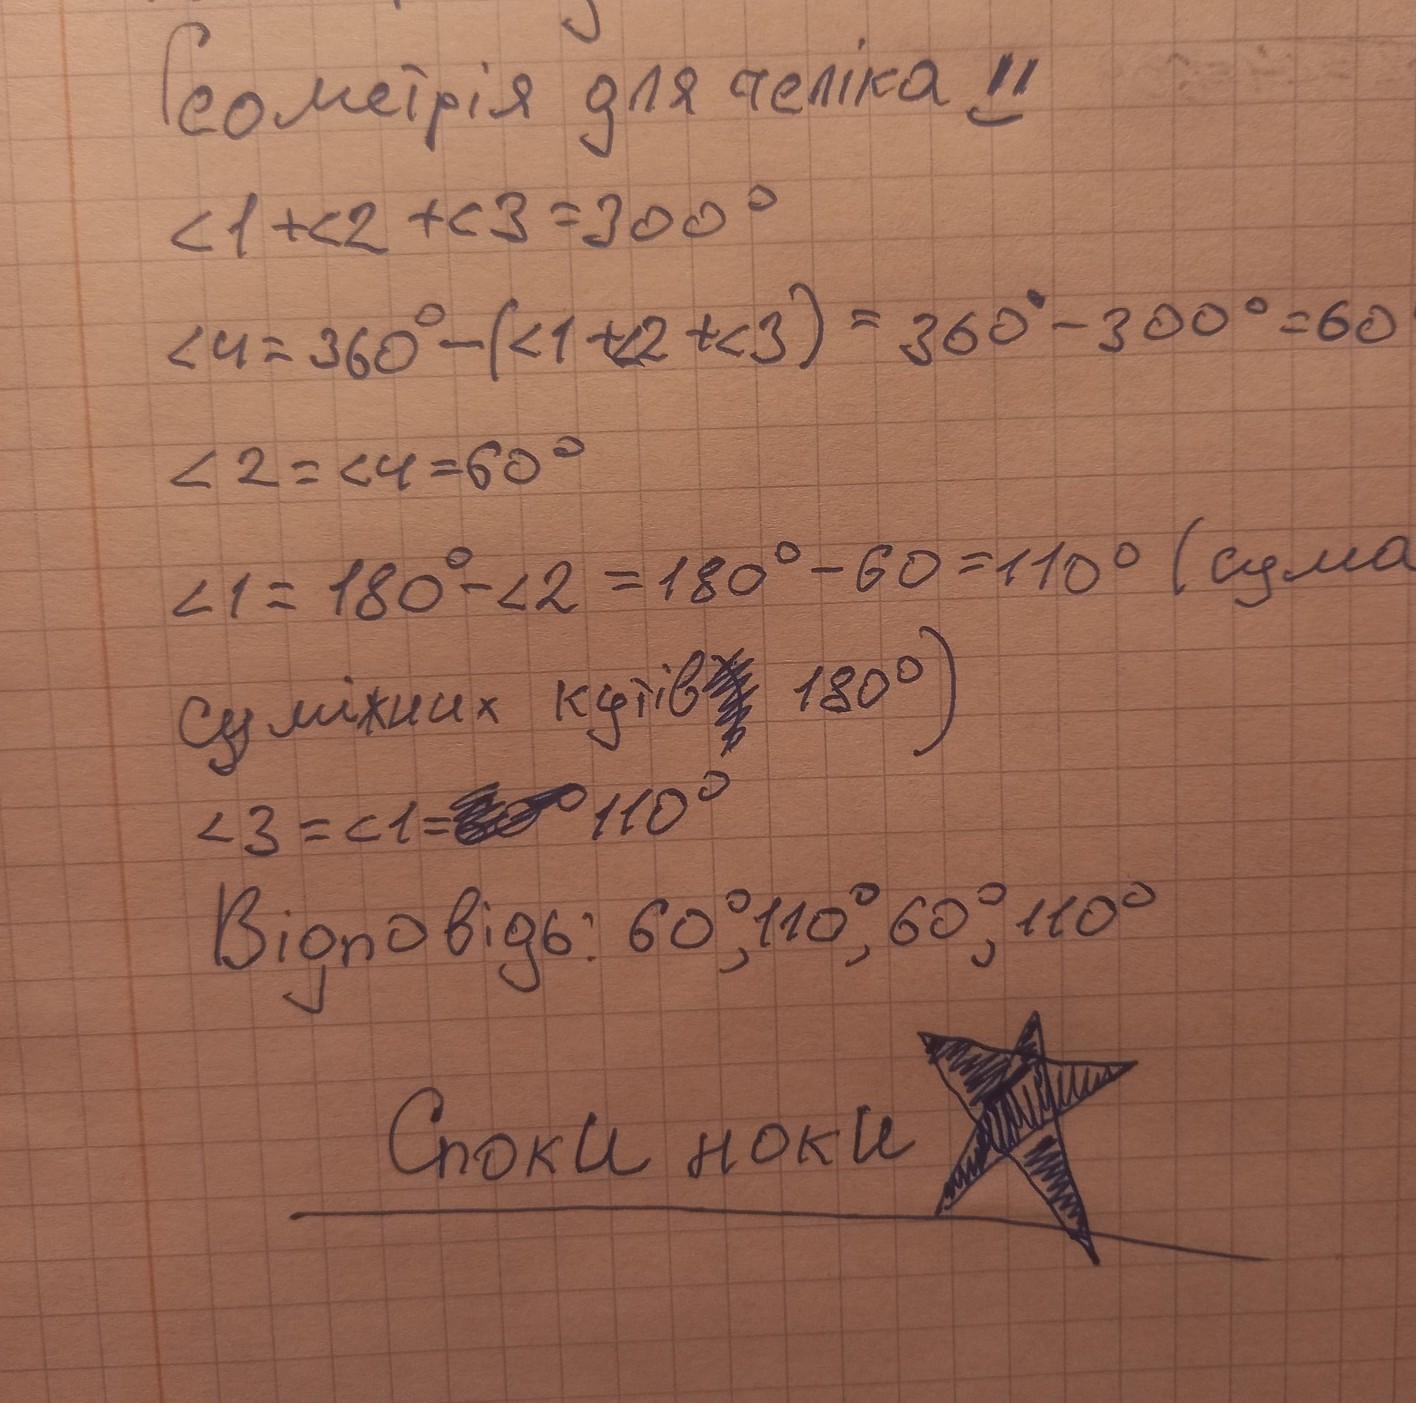 Геометрія для челіка !!
<1+<2+<3=300°
<4=360°-(<1+<2+<3)=360°-300°=60°
<2=<4=60°
<1=180°-<2=180°-60=110° (сума
суміжних кутів 180°)
<3=<1=110°
Відповідь: 60°,110°,60°,110°
Споки ноки